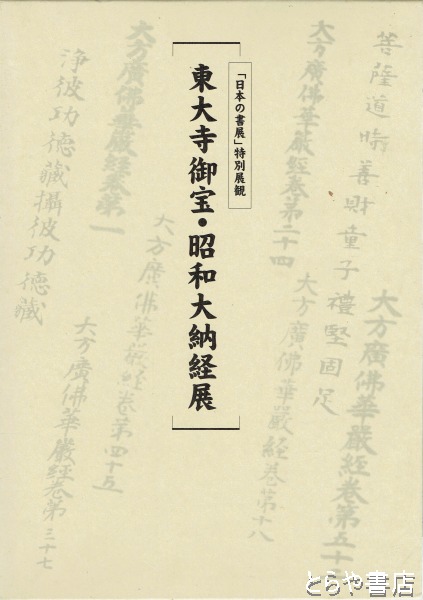 「日本の書展」特別展観
東大寺御宝・昭和大納経展
菩薩道時善財童子禮堅固足
大方廣佛華嚴經卷第五十
大方廣佛華嚴經卷第二十四
大方廣佛華嚴經卷第十八
大方廣佛華嚴經卷第一
大方廣佛華嚴經卷第四十五
浄彼功德藏攝彼功德藏
大方廣佛華嚴經卷第三十七
とらや書店